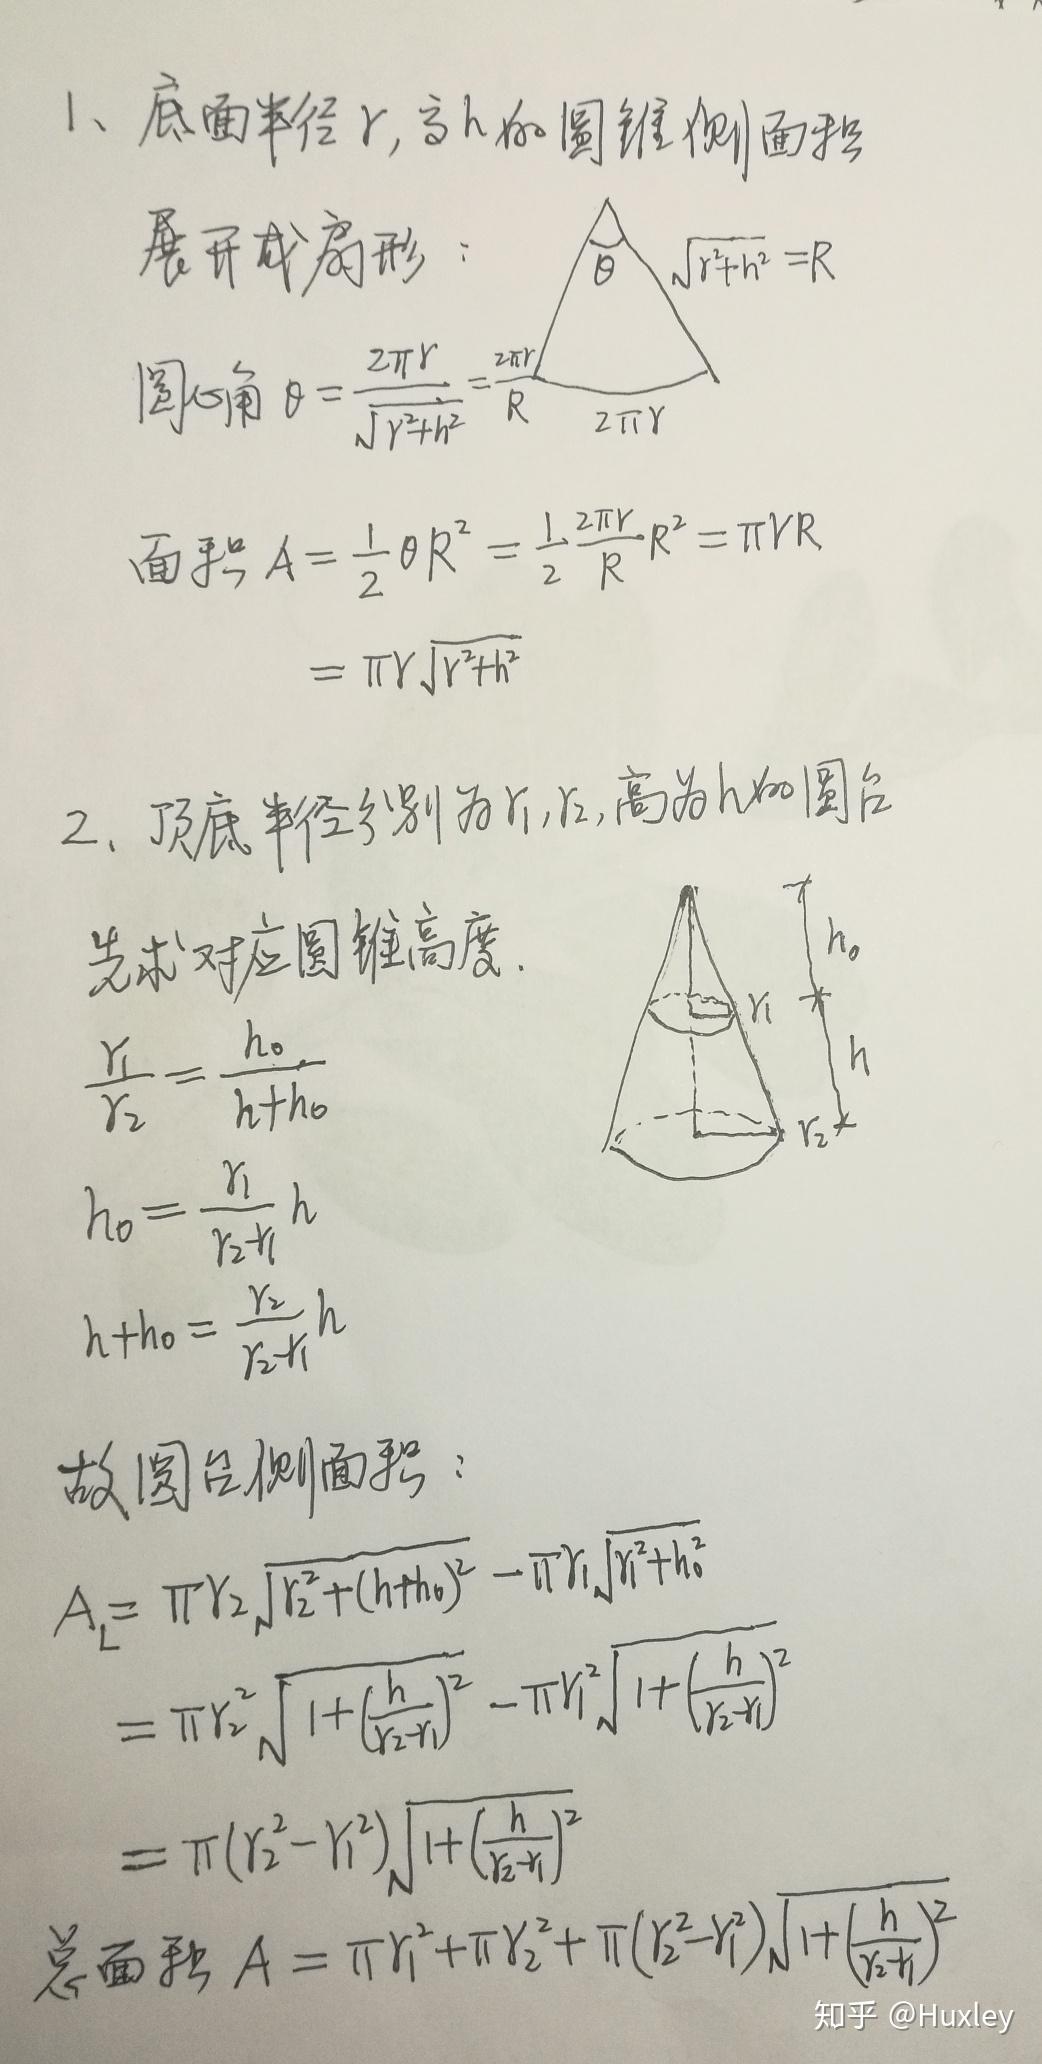 1、底面半径r,高h的圆锥侧面积
展开成扇形:
θ
√(r²+h²) = R
圆心角 θ = 2πr/√(r²+h²) = 2πr/R
2πr
面积 A = 1/2 θR² = 1/2 2πr/R R² = πrR
= πr√(r²+h²)
2、顶底半径分别为r₁,r₂,高为h的圆台
先求对应圆锥高度.
h₀
r₁
h
r₂
r₁/r₂ = h₀/(h+h₀)
h₀ = r₁/(r₂-r₁) h
h+h₀ = r₂/(r₂-r₁) h
故圆台侧面积:
A_L = πr₂√(r₂²+(h+h₀)²) - πr₁√(r₁²+h₀²)
= πr₂²√(1+(h/(r₂-r₁))²) - πr₁²√(1+(h/(r₂-r₁))²)
= π(r₂²-r₁²)√(1+(h/(r₂-r₁))²)
总面积 A = πr₁²+πr₂²+π(r₂²-r₁²)√(1+(h/(r₂-r₁))²)
知乎 @Huxley